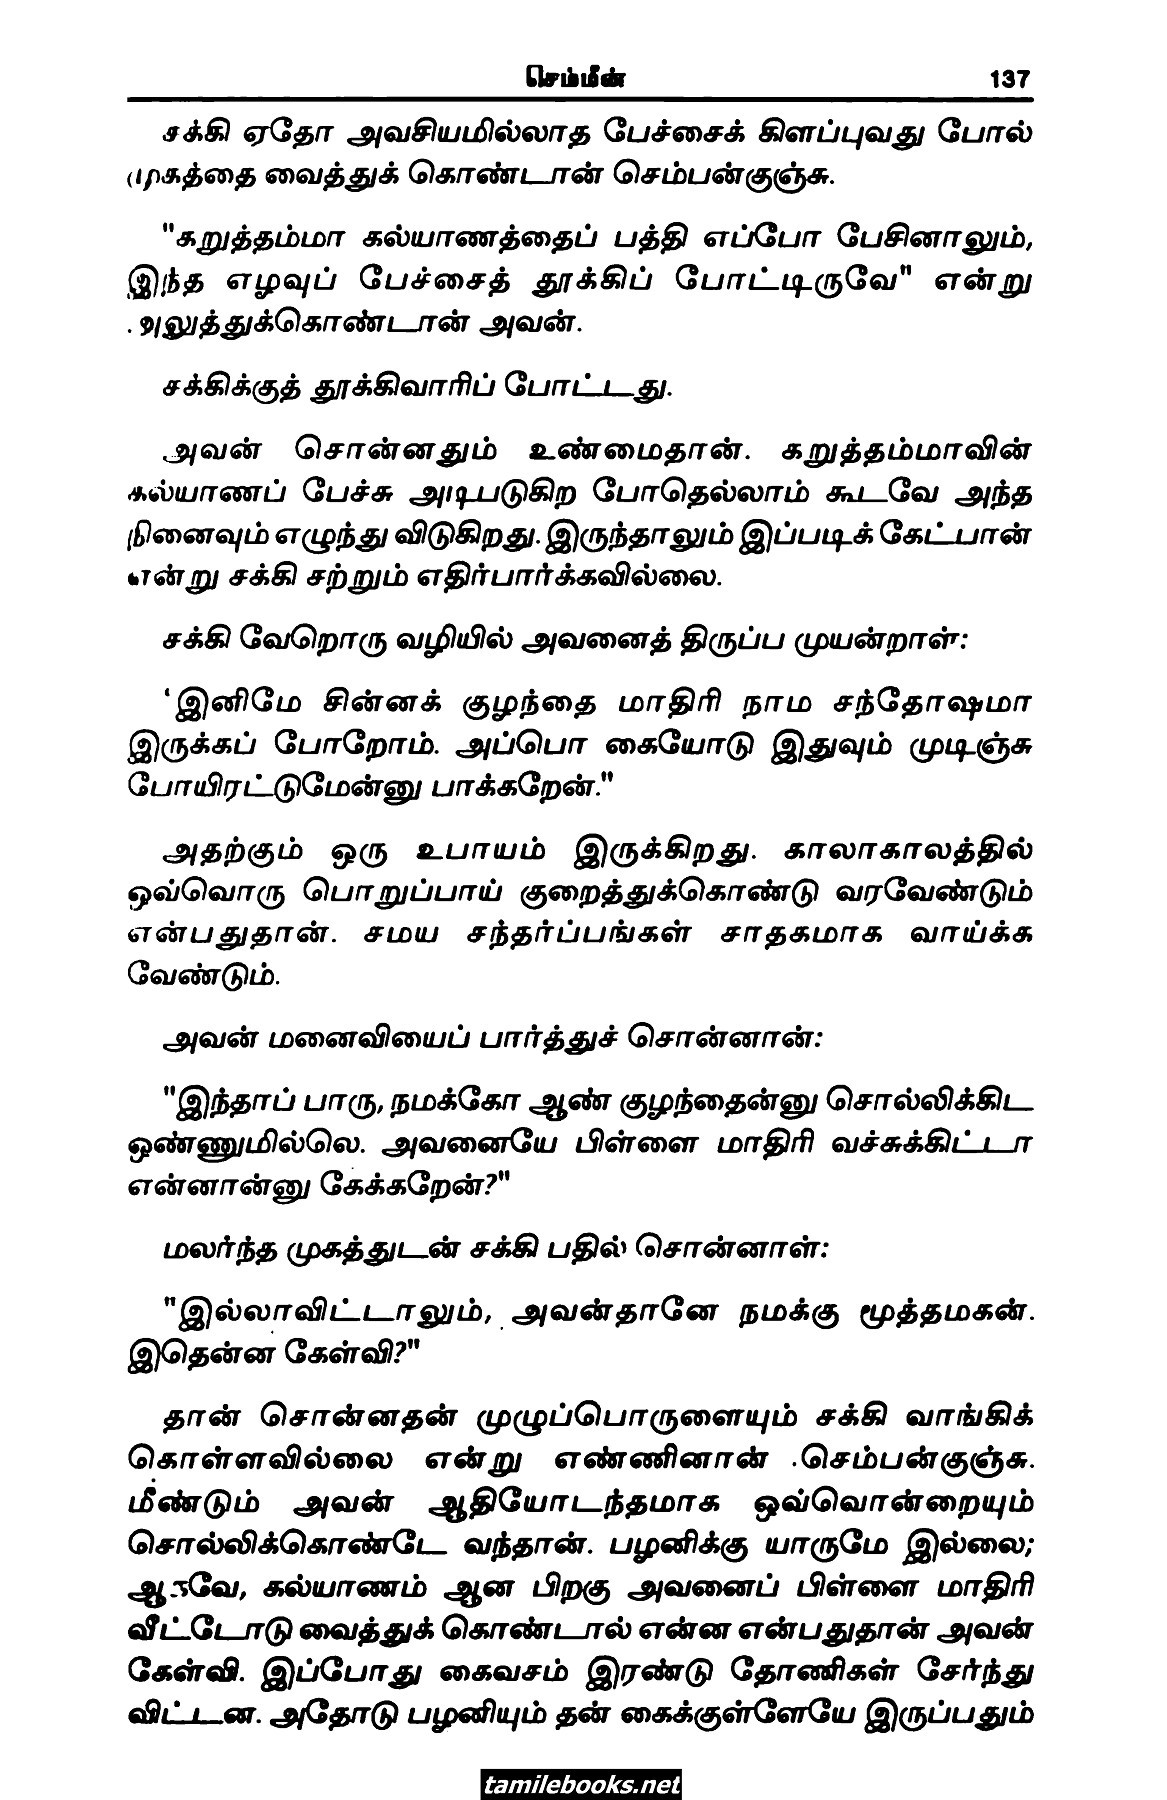 செம்மீன் 137
சக்கி ஏதோ அவசியமில்லாத பேச்சைக் கிளப்புவது போல்
முகத்தை வைத்துக் கொண்டான் செம்பன்குஞ்சு.
"கறுத்தம்மா கல்யாணத்தைப் பத்தி எப்போ பேசினாலும்,
இந்த எழவுப் பேச்சைத் தூக்கிப் போட்டிருவே" என்று
அலுத்துக்கொண்டான் அவன்.
சக்கிக்குத் தூக்கிவாரிப் போட்டது.
அவன் சொன்னதும் உண்மைதான். கறுத்தம்மாவின்
கல்யாணப் பேச்சு அடிபடுகிற போதெல்லாம் கூடவே அந்த
நினைவும் எழுந்து விடுகிறது. இருந்தாலும் இப்படிக் கேட்பான்
என்று சக்கி சற்றும் எதிர்பார்க்கவில்லை.
சக்கி வேறொரு வழியில் அவனைத் திருப்ப முயன்றாள்:
'இனிமே சின்னக் குழந்தை மாதிரி நாம சந்தோஷமா
இருக்கப் போறோம். அப்பொ கையோடு இதுவும் முடிஞ்சு
போயிரட்டுமேன்னு பாக்கறேன்."
அதற்கும் ஒரு உபாயம் இருக்கிறது. காலாகாலத்தில்
ஒவ்வொரு பொறுப்பாய் குறைத்துக்கொண்டு வரவேண்டும்
என்பதுதான். சமய சந்தர்ப்பங்கள் சாதகமாக வாய்க்க
வேண்டும்.
அவன் மனைவியைப் பார்த்துச் சொன்னான்:
"இந்தாப் பாரு, நமக்கோ ஆண் குழந்தைன்னு சொல்லிக்கிட
ஒண்ணுமில்லெ. அவனையே பிள்ளை மாதிரி வச்சுக்கிட்டா
என்னான்னு கேக்கறேன்?"
மலர்ந்த முகத்துடன் சக்கி பதில் சொன்னாள்:
"இல்லாவிட்டாலும், அவன்தானே நமக்கு மூத்தமகன்.
இதென்ன கேள்வி?"
தான் சொன்னதன் முழுப்பொருளையும் சக்கி வாங்கிக்
கொள்ளவில்லை என்று எண்ணினான் செம்பன்குஞ்சு.
மீண்டும் அவன் ஆதியோடந்தமாக ஒவ்வொன்றையும்
சொல்லிக்கொண்டே வந்தான். பழனிக்கு யாருமே இல்லை;
ஆகவே, கல்யாணம் ஆன பிறகு அவனைப் பிள்ளை மாதிரி
வீட்டோடு வைத்துக் கொண்டால் என்ன என்பதுதான் அவன்
கேள்வி. இப்போது கைவசம் இரண்டு தோணிகள் சேர்ந்து
விட்டன. அதோடு பழனியும் தன் கைக்குள்ளேயே இருப்பதும்
tamilebooks.net